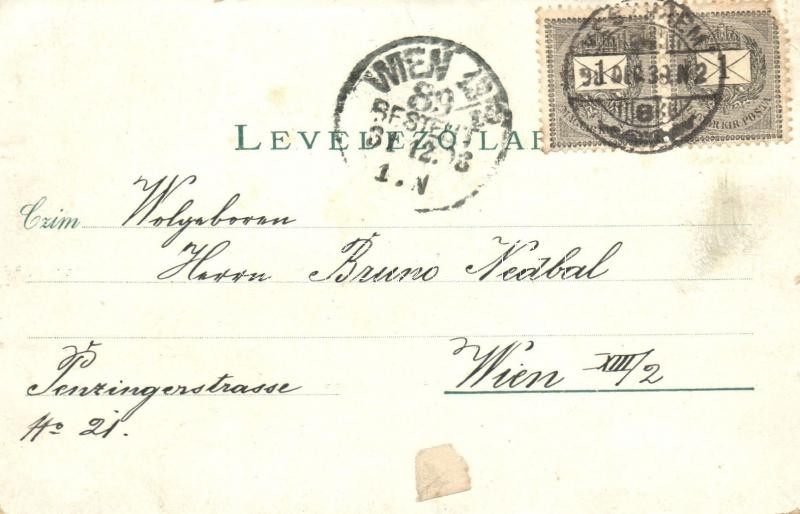 LEVELEZŐ-LAP
WIEN
89
BESTELLT
31.12.98
1.N
1 1
KIR.POSTA
Czim Wolgeboren
Herrn Bruno Nedbal
Wien XIII/2
Penzingerstrasse
No 21.